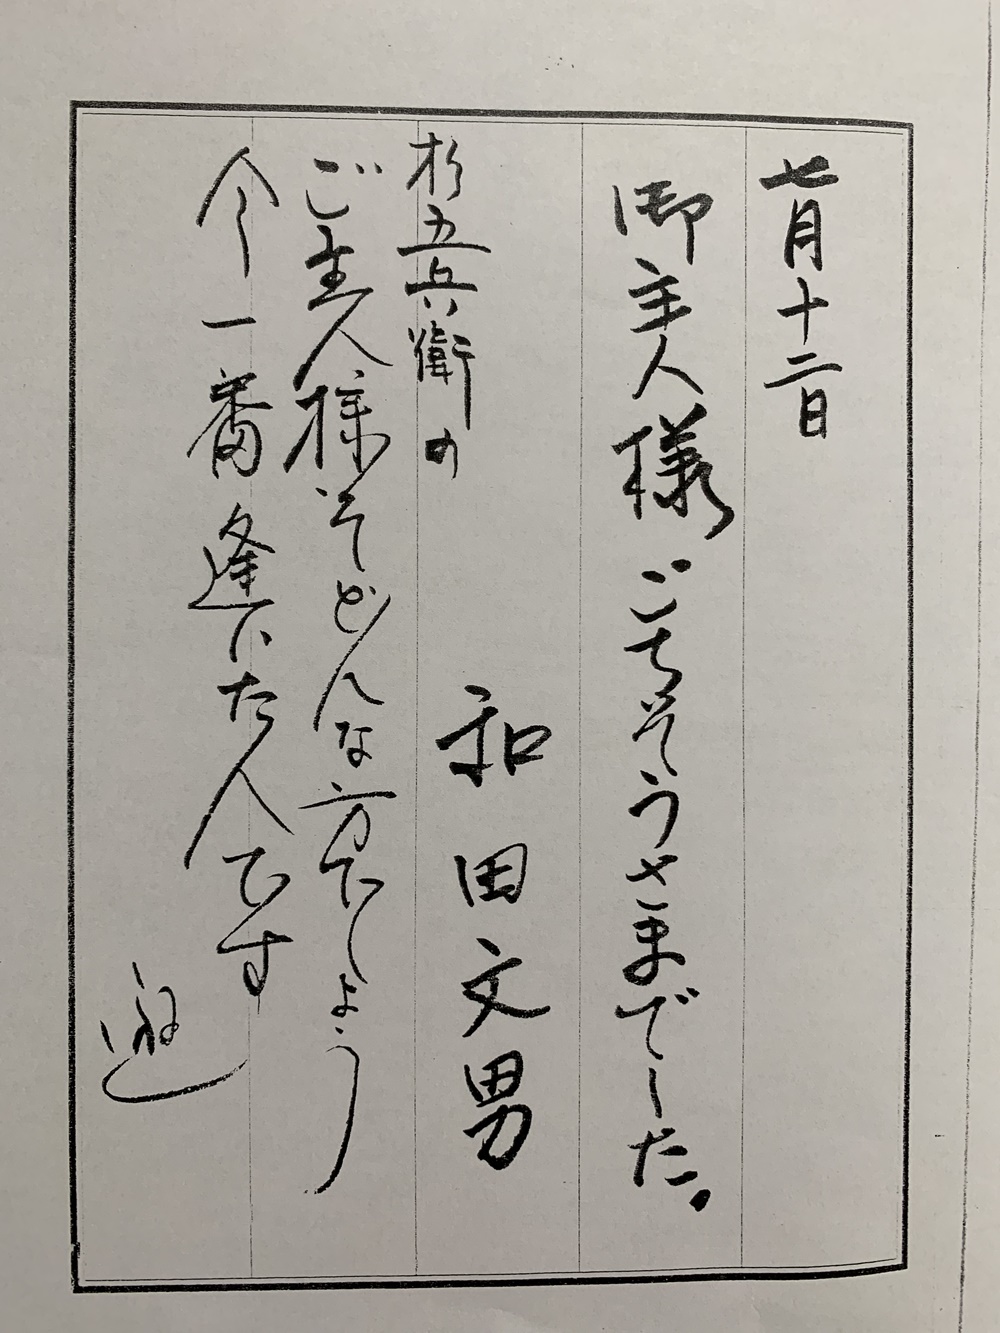 七月十二日
御主人様ごちそうさまでした。
和田文男
杉五兵衛の
ご主人様てどんな方でしょう
今一番逢いたい人です